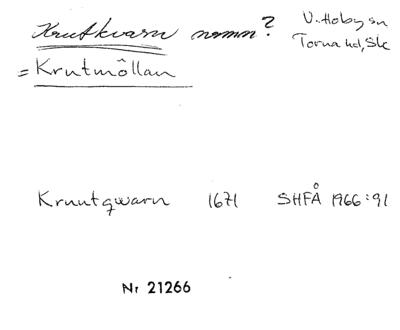 Krutkvarn namn? V. Hoby sn
Torna hd, Sk
= Krutmôllan
Kruutqwarn 1671 SHFÅ 1966:91
Nr 21266